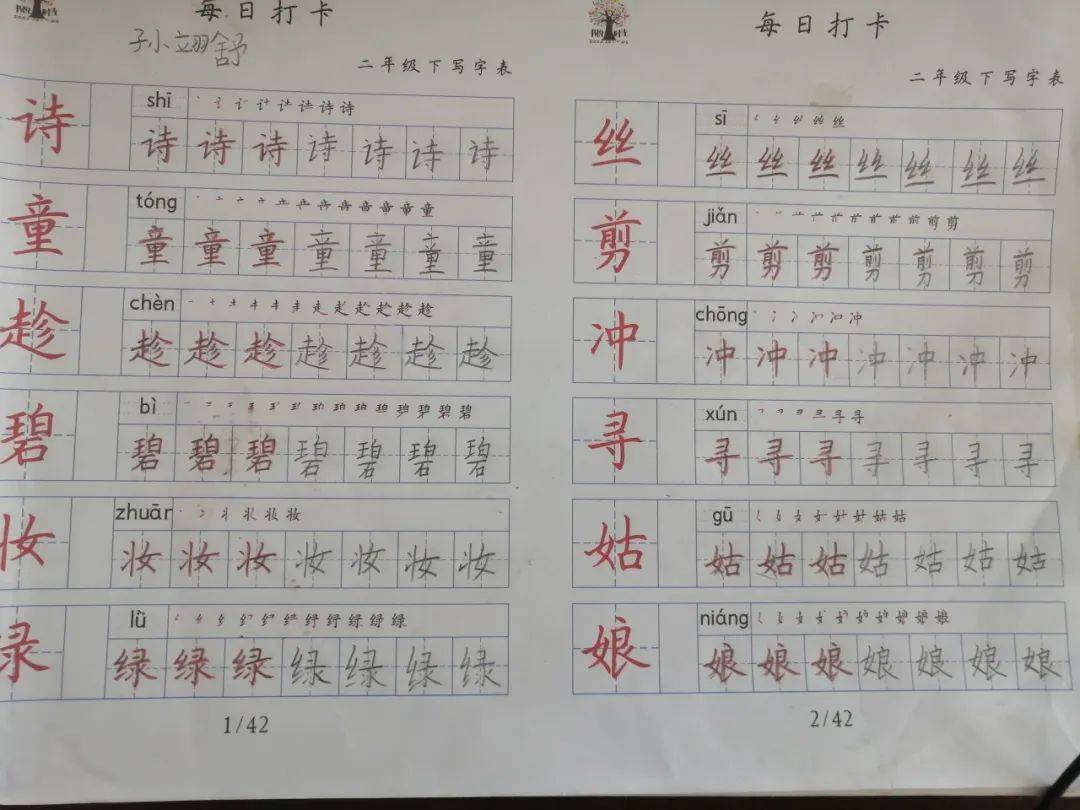 每日打卡
孙翊舒
二年级下写字表
诗
shī 诗 诗
诗 诗 诗 诗 诗 诗 诗
童
tóng 童
童 童 童 童 童 童 童
趁
chèn 趁
趁 趁 趁 趁 趁 趁 趁
碧
bì 碧
碧 碧 碧 碧 碧 碧 碧
妆
zhuān 妆
妆 妆 妆 妆 妆 妆 妆
绿
lǜ 绿
绿 绿 绿 绿 绿 绿 绿
1/42
每日打卡
二年级下写字表
丝
sī 丝
丝 丝 丝 丝 丝 丝 丝
剪
jiǎn 剪
剪 剪 剪 剪 剪 剪 剪
冲
chōng 冲
冲 冲 冲 冲 冲 冲 冲
寻
xún 寻
寻 寻 寻 寻 寻 寻 寻
姑
gū 姑
姑 姑 姑 姑 姑 姑 姑
娘
niáng 娘
娘 娘 娘 娘 娘 娘 娘
2/42